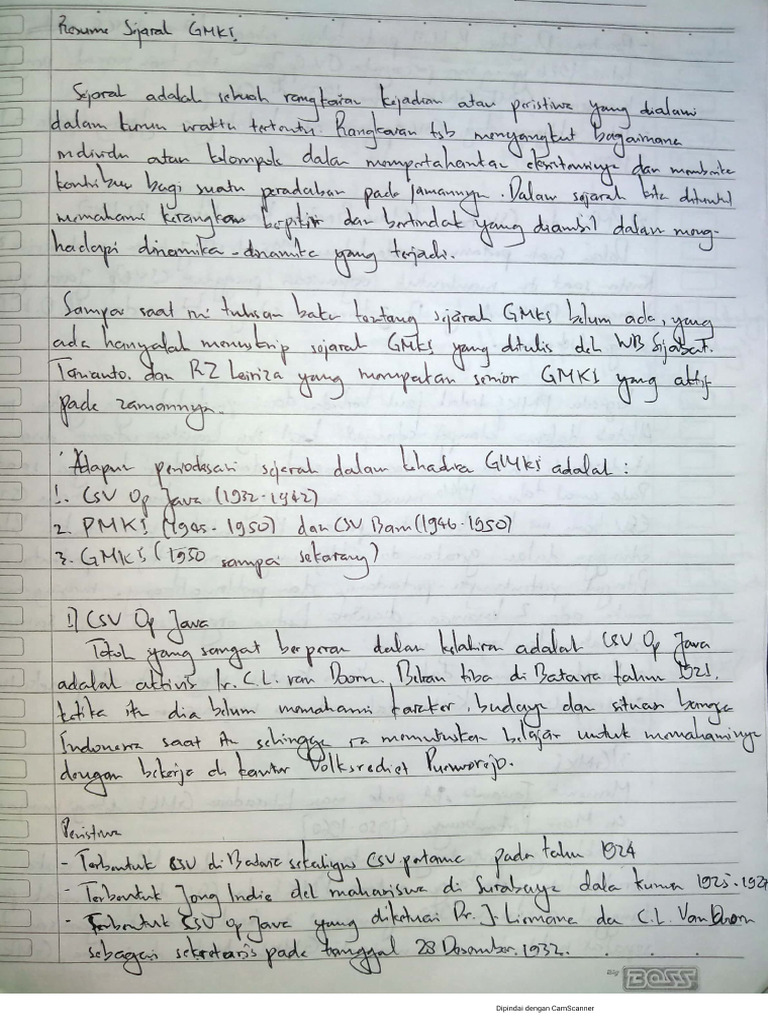 Resume Sejarah GMKI.
Sejarah adalah sebuah rangkaian kejadian atau peristiwa yang dialami
dalam kurun waktu tertentu. Rangkaian tsb menyangkut bagaimana
individu atau kelompok dalam mempertahankan eksistensinya dan memberike
kontribusi bagi suatu peradaban pada jamannya. Dalam sejarah kita dituntut
memahami kerangkan berpikir dan bertindak yang diambil dalam meng-
hadapi dinamika-dinamika yang terjadi.
Sampai saat ini tulisan baku tentang sejarah GMKI belum ada, yang
ada hanyalah menuskrip sejarah GMKI yang ditulis oleh WB Sijabat.
Tarianto. dan RZ Leiriza yang merupakan senior GMKI yang aktif
pada zamannya.
Adapun periodesasi sejarah dalam GMKI adalah :
1. CSV Op Java (1932-1942)
2. PMKI (1945-1950) dan CSV Baru (1946-1950)
3. GMKI (1950 sampai sekarang)
1) CSV Op Java
Tokoh yang sangat berperan dalam kelahiran adalah CSV Op Java
adalah aktivis Ir. C.L. van Doorn. Beliau tiba di Batavia tahun 1921.
ketika itu dia belum memahami karakter, budaya dan situasi bangsa
Indonesia saat itu sehingga ia memutuskan belajar untuk memahaminya
dengan bekerja di kantor Volkscrediet Purworejo.
Peristiwa
- Terbentuk CSV di Batavia sekaligus CSV pertama pada tahun 1924
- Terbentuk Jong Indie oleh mahasiswa di Surabaya dala kurun 1925-192
- Terbentuk CSV Op Java yang diketuai Dr. J. Liemena dan C.L. Van Doorn
sebagai sekretaris pada tanggal 28 Desember 1932.
Big BOSS
Dipindai dengan CamScanner